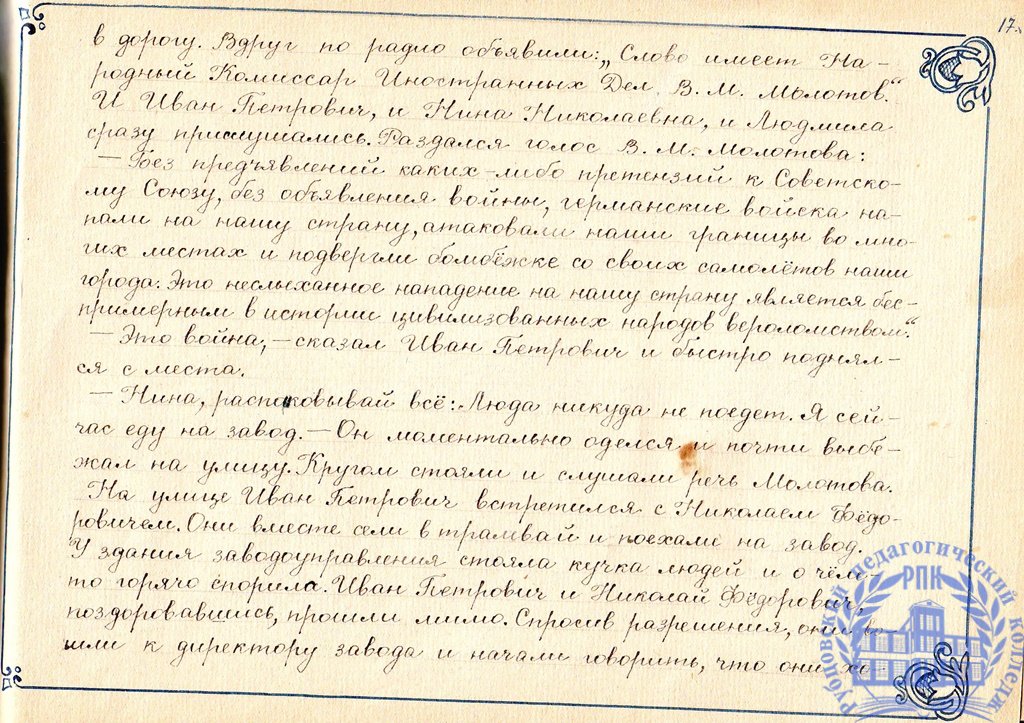 17.
в дорогу. Вдруг по радио объявили: „Слово имеет На-
родный Комиссар Иностранных Дел В. М. Молотов."
И Иван Петрович, и Нина Николаевна, и Людмила
сразу прислушались. Раздался голос В. М. Молотова:
— „Без предъявлений каких-либо претензий к Советско-
му Союзу, без объявления войны, германские войска на-
пали на нашу страну, атаковали наши границы во мно-
гих местах и подвергли бомбёжке со своих самолётов наши
города. Это неслыханное нападение на нашу страну является бес-
примерным в истории цивилизованных народов вероломством."
— Это война, — сказал Иван Петрович и быстро поднял-
ся с места.
— Нина, распаковывай всё: Люда никуда не поедет. Я сей-
час еду на завод. — Он моментально оделся и почти выбе-
жал на улицу. Кругом стояли и слушали речь Молотова.
На улице Иван Петрович встретился с Николаем Фёдо-
ровичем. Они вместе сели в трамвай и поехали на завод.
У здания заводоуправления стояла кучка людей и о чём-
то горячо спорила. Иван Петрович и Николай Фёдорович,
поздоровавшись, прошли мимо. Спросив разрешения, они во
шли к директору завода и начали говорить, что они хо-
Рубцовский педагогический колледж
РПК